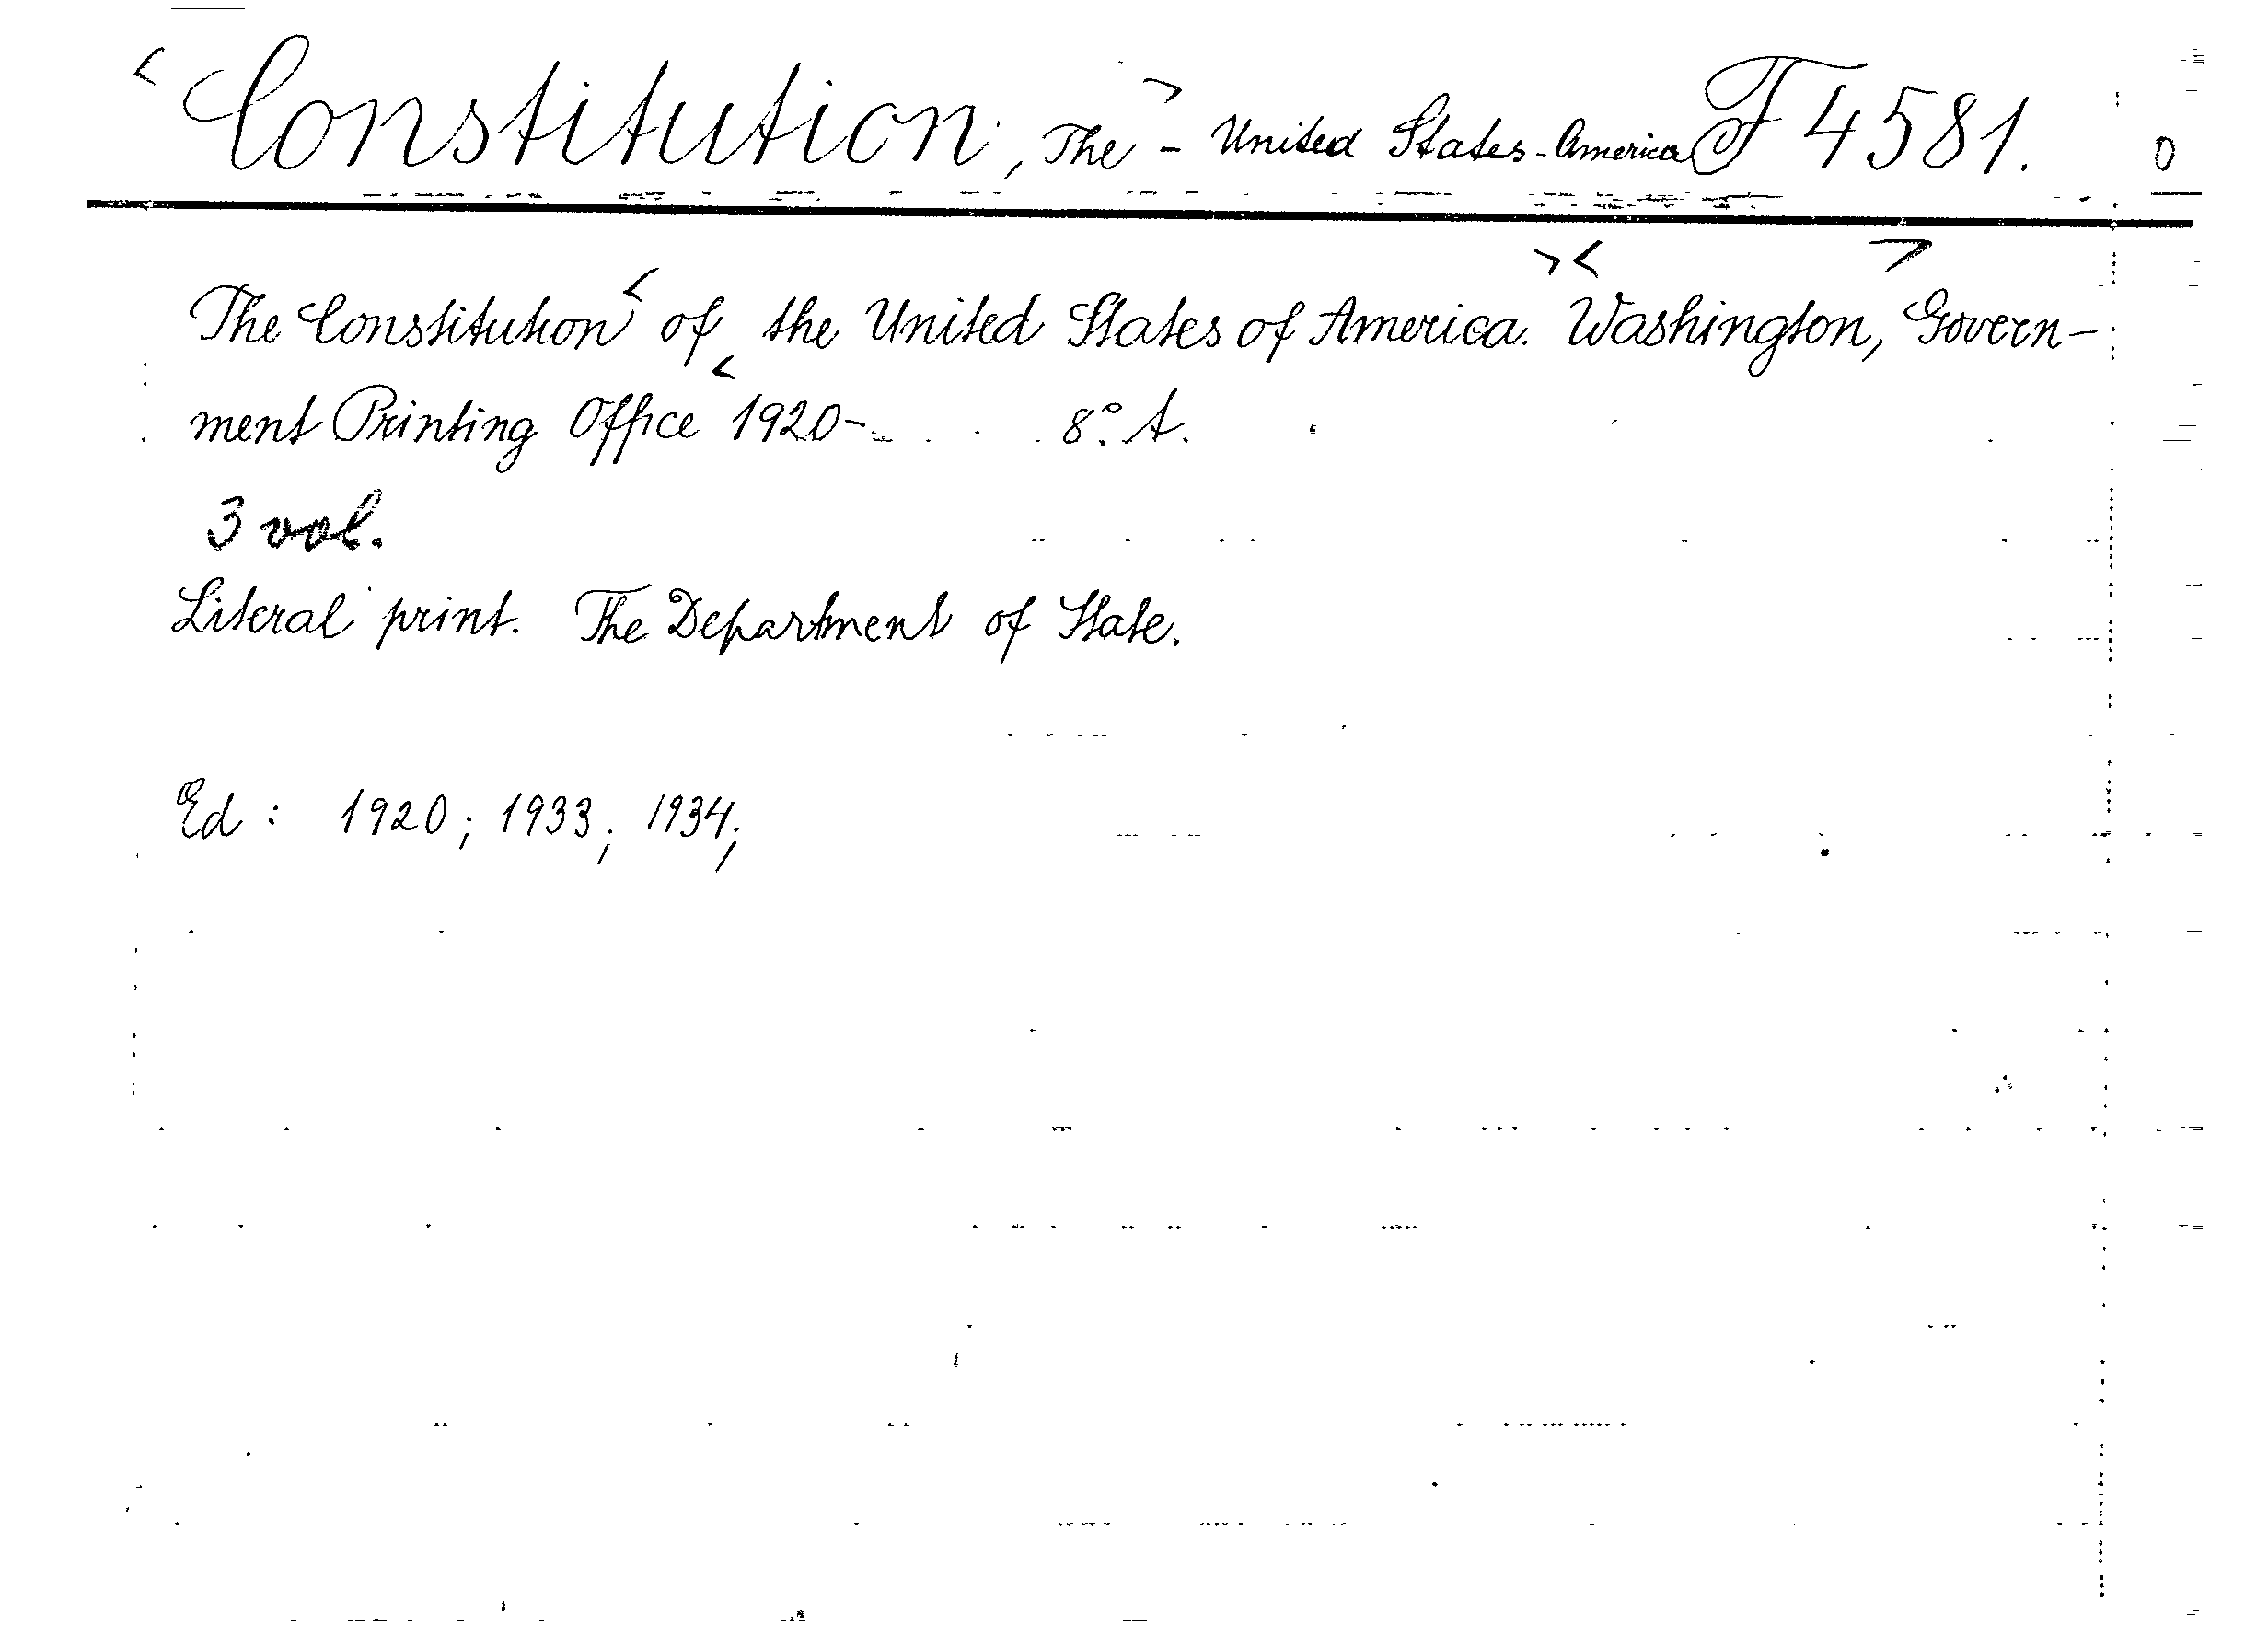 <Constitution, The> - United States-America F 4581. 0
The Constitution< of the United States of America.>< Washington,> Govern-
ment Printing Office< 1920- 8° A.
3 vol.
Literal print. The Department of State.
Ed : 1920; 1933; 1934;